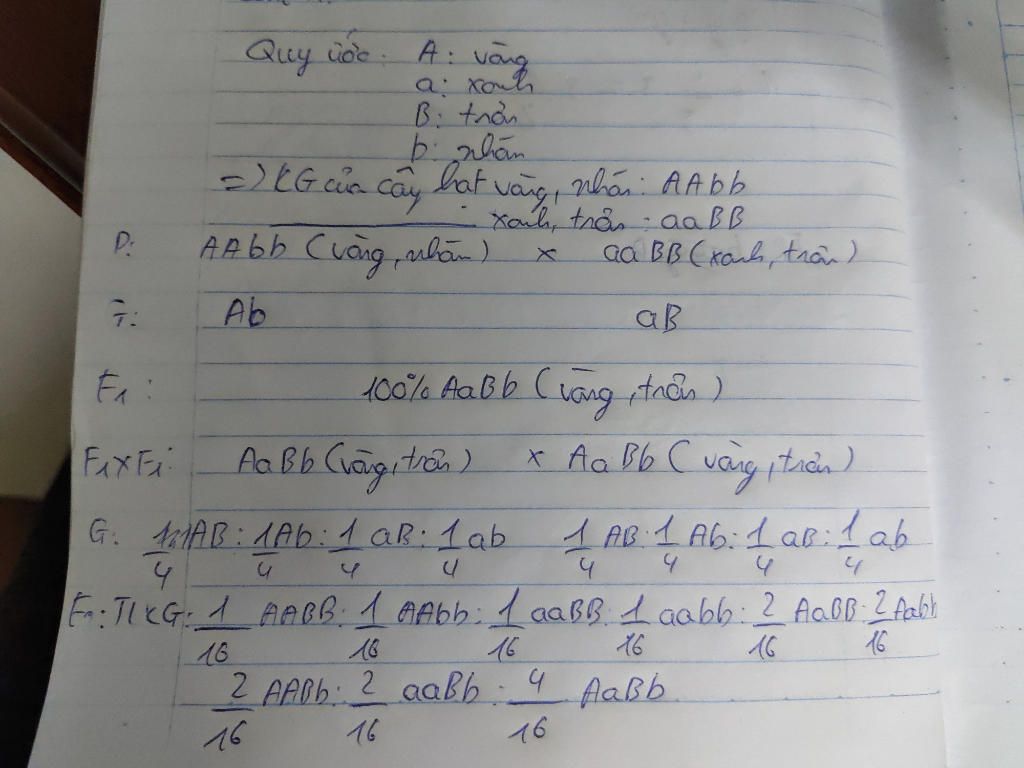 Quy ước: A: vàng
a: xanh
B: trơn
b: nhăn
=> KG của cây hạt vàng, nhăn: AAbb
xanh, trơn: aaBB
P: AAbb (vàng, nhăn) x aaBB (xanh, trơn)
G: Ab aB
F1: 100% AaBb (vàng, trơn)
F1xF1: AaBb (vàng, trơn) x AaBb (vàng, trơn)
G: 1/4 AB : 1/4 Ab : 1/4 aB : 1/4 ab 1/4 AB : 1/4 Ab : 1/4 aB : 1/4 ab
TLKG: 1/16 AABB : 1/16 AAbb : 1/16 aaBB : 1/16 aabb : 2/16 AaBB : 2/16 Aabb
2/16 AABb : 2/16 aaBb : 4/16 AaBb